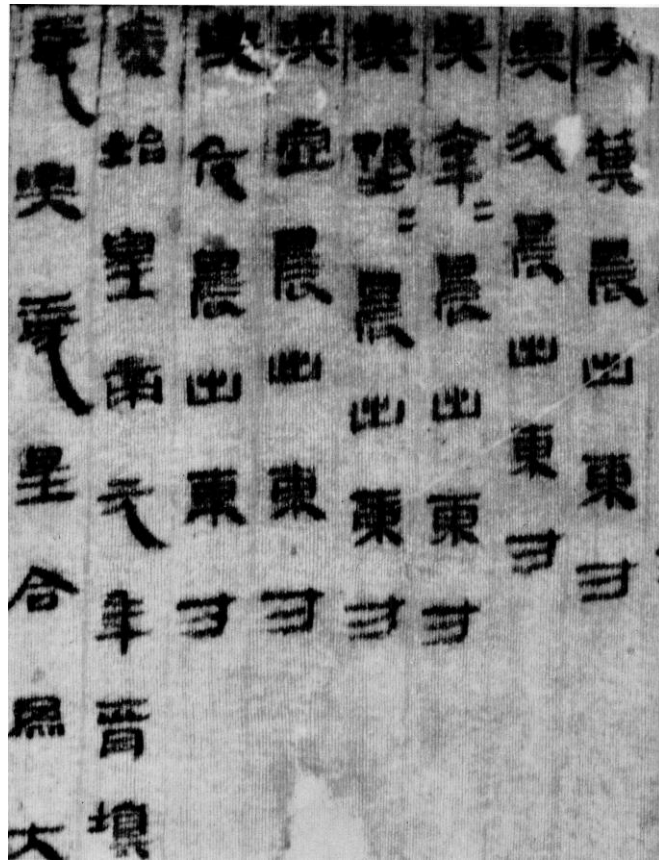 與箕晨出東方
與斗晨出東方
與牽=晨出東方
與婺=晨出東方
與虛晨出東方
與危晨出東方
秦始皇帝元年正月填
與星合為大